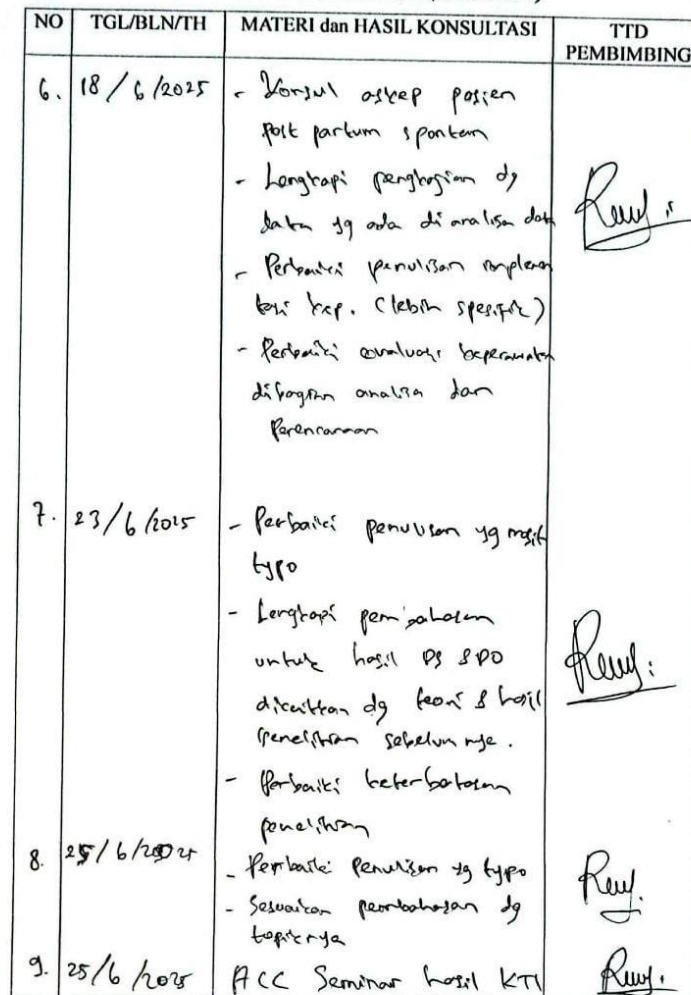 NO TGL/BLN/TH MATERI dan HASIL KONSULTASI TTD
PEMBIMBING
6. 18/6/2025 - Konsul askep pasien
post partum spontan
- Lengkapi pengkajian dg
data yg ada di analisa data
- Perbaiki penulisan implemen
tasi kep. (lebih spesifik)
- Perbaiki evaluasi keperawatan
dibagian analisa dan
Perencanaan
7. 23/6/2025 - Perbaiki penulisan yg masih
typo
- Lengkapi pembahasan
untuk hasil DS & DO
dikaitkan dg teori & hasil
penelitian sebelumnya.
- Perbaiki keterbatasan
penelitian
8. 25/6/2025 - Perbaiki penulisan yg typo
- Sesuaikan pembahasan dg
topiknya
9. 25/6/2025 ACC Seminar hasil KTI